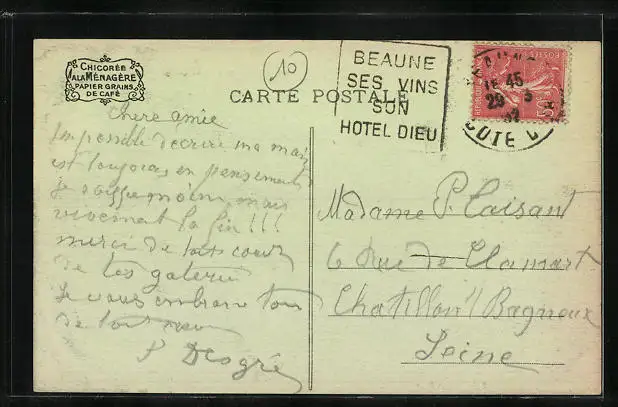 CHICORÉE
A LA MÉNAGÈRE
PAPIER GRAINS
DE CAFÉ
10
CARTE POSTALE
BEAUNE
SES VINS
SON
HOTEL DIEU
15 45
29 3
32
COTE D
Chere amie
Impossible d'ecrire ma main
est toujours en pansement
je souffre moins mais
vivement la fin !!!
merci de tout coeur
de tes
Je vous embrasse tous
de tout coeur
P
Madame P. Laisant
6 Rue de Clamart
Chatillon s/ Bagneux
Seine